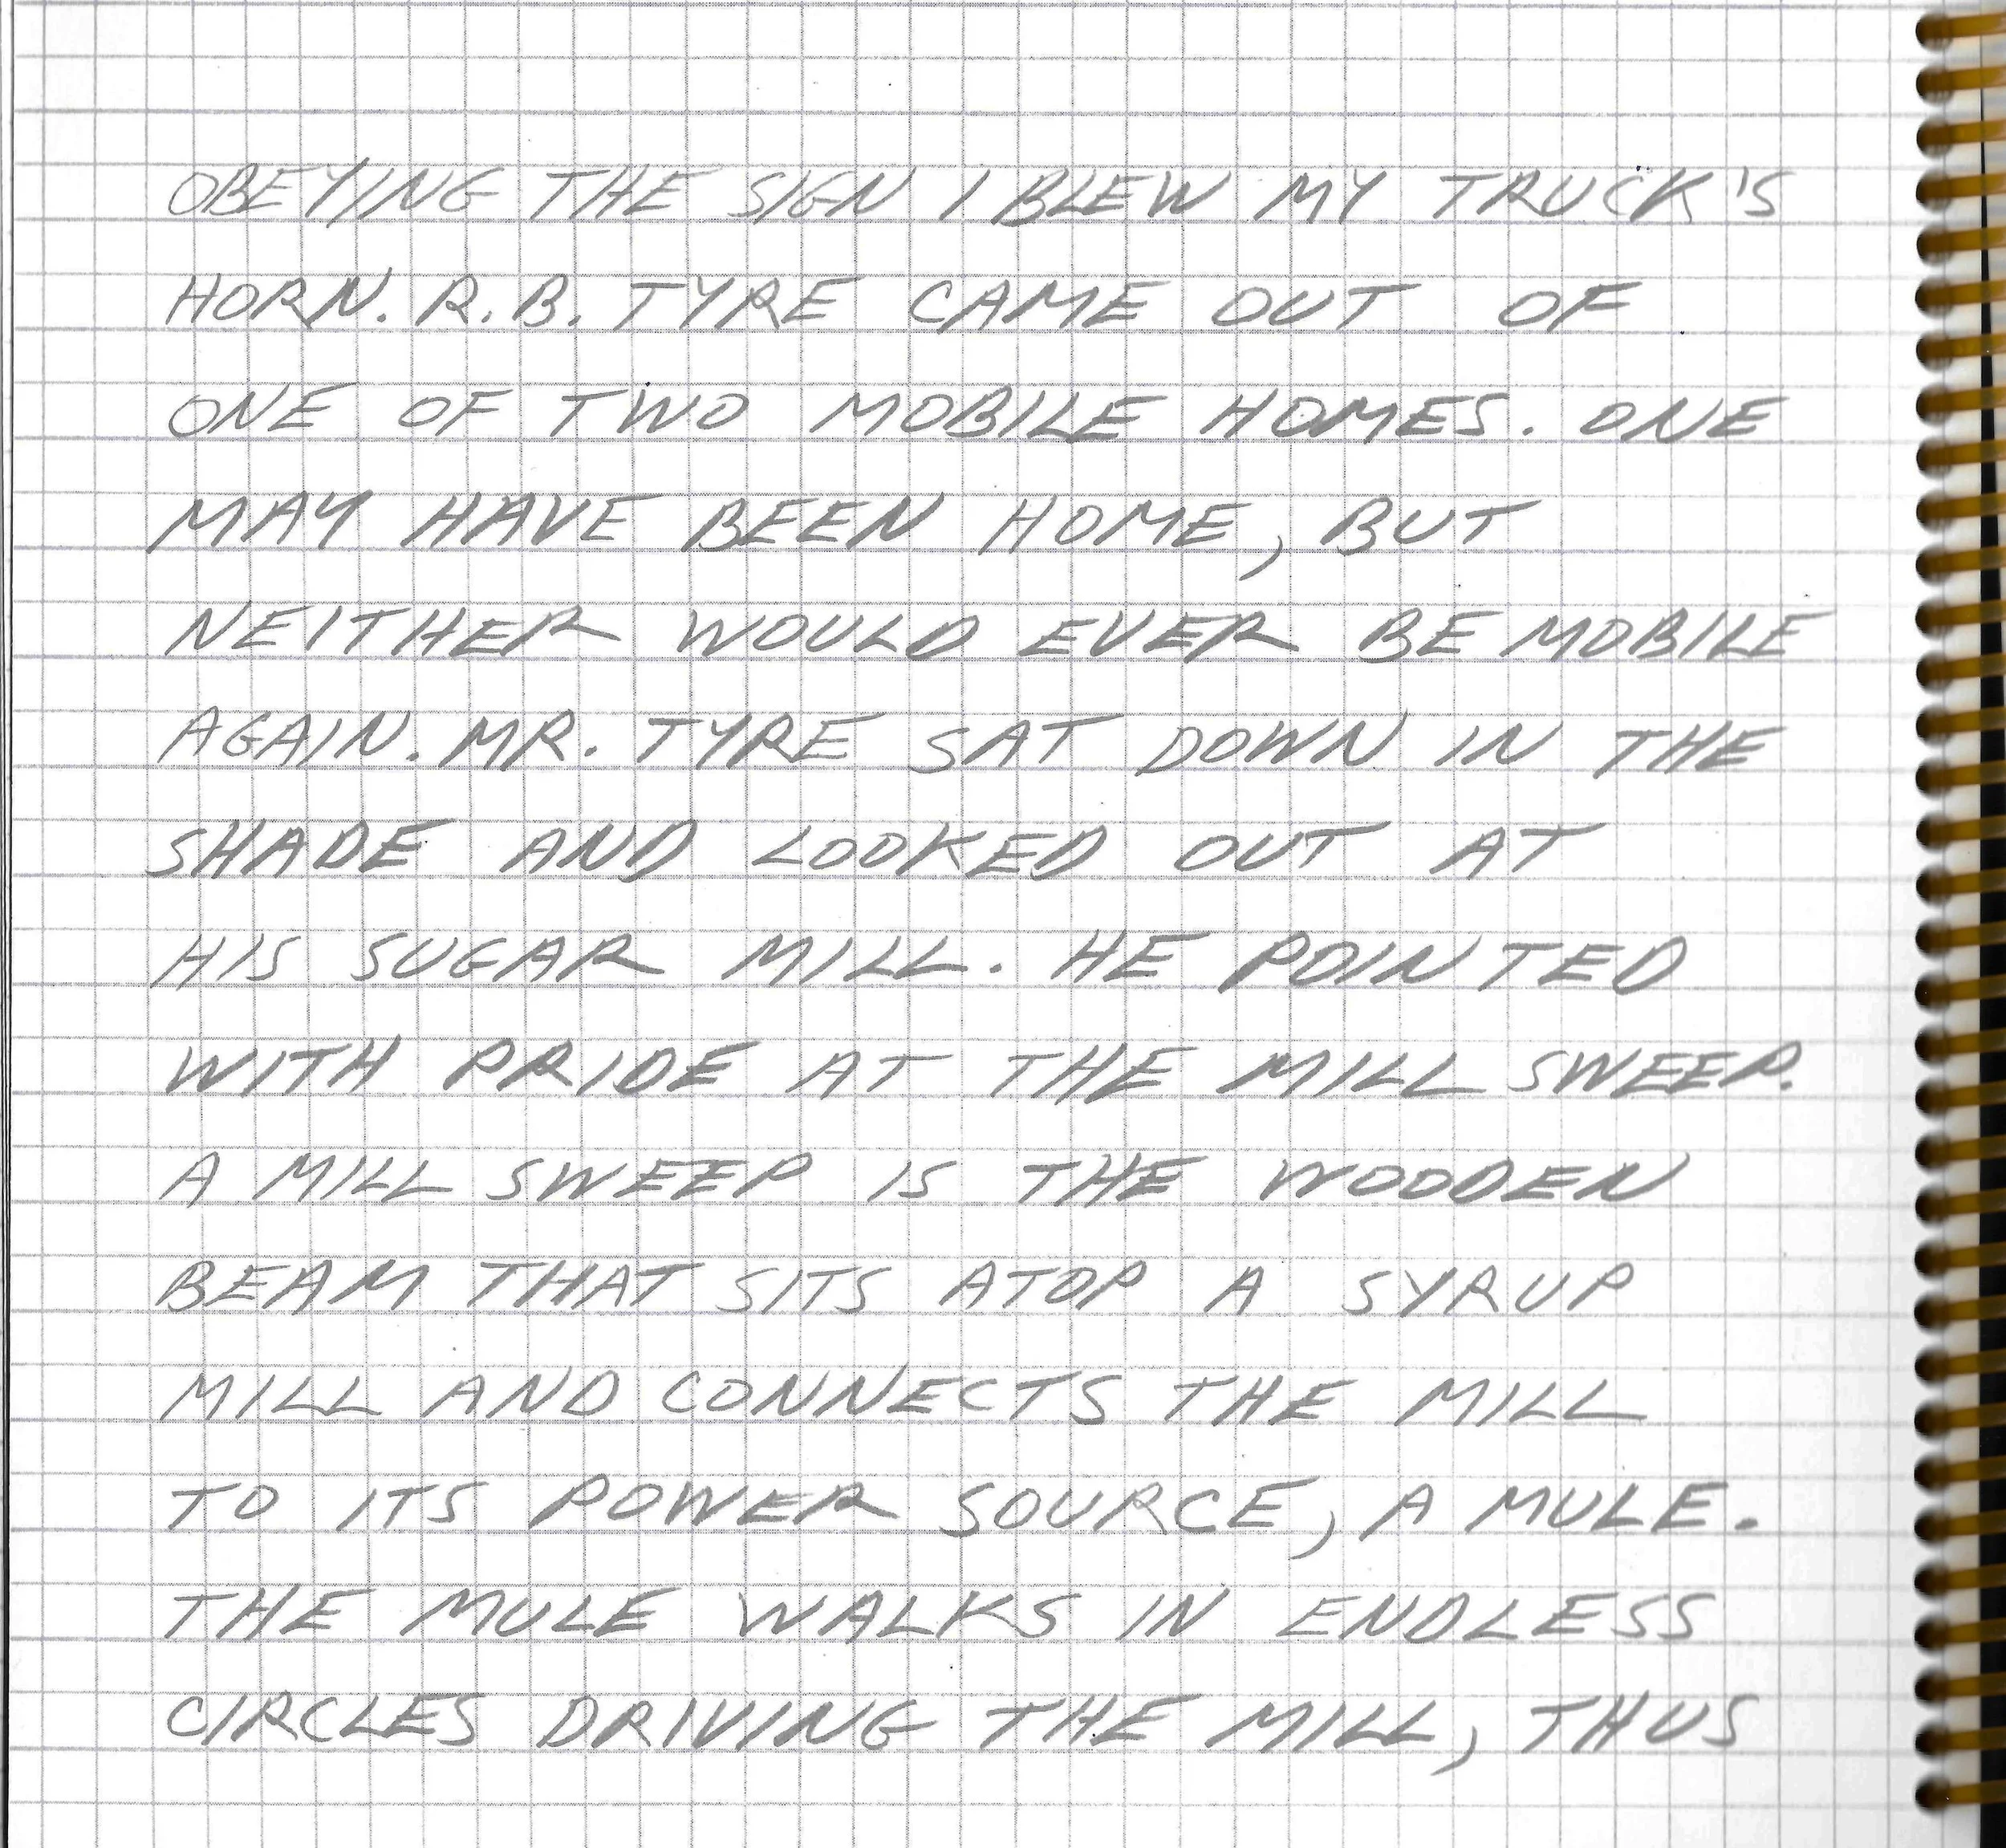 OBEYING THE SIGN I BLEW MY TRUCK'S
HORN. R.B. TYRE CAME OUT OF
ONE OF TWO MOBILE HOMES. ONE
MAY HAVE BEEN HOME, BUT
NEITHER WOULD EVER BE MOBILE
AGAIN. MR. TYRE SAT DOWN IN THE
SHADE AND LOOKED OUT AT
HIS SUGAR MILL. HE POINTED
WITH PRIDE AT THE MILL SWEEP.
A MILL SWEEP IS THE WOODEN
BEAM THAT SITS ATOP A SYRUP
MILL AND CONNECTS THE MILL
TO ITS POWER SOURCE, A MULE.
THE MULE WALKS IN ENDLESS
CIRCLES DRIVING THE MILL, THUS